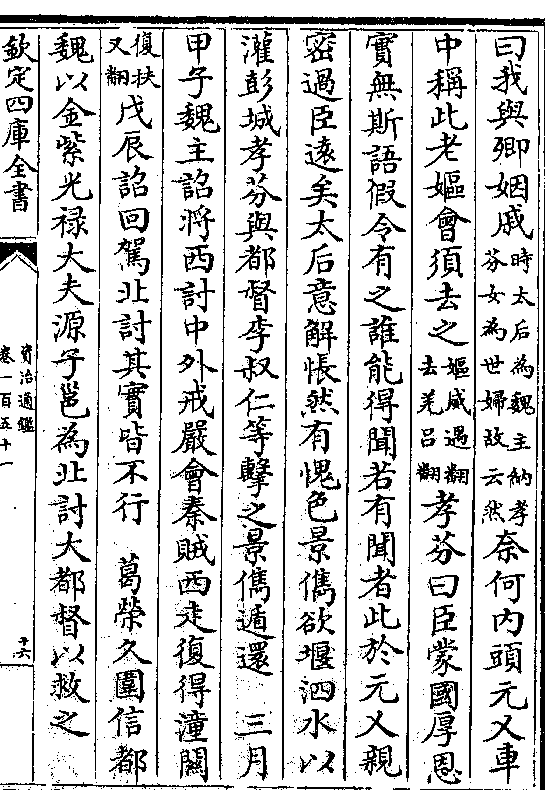 曰我與卿姻戚時太后為魏主納孝芬女為世婦故云然奈何內頭元乂車
中稱此老嫗會須去之嫗威遇翻去羌呂翻孝芬曰臣蒙國厚恩
實無斯語假令有之誰能得聞若有聞者此於元乂親
密過臣遠矣太后意解悵然有愧色景儁欲堰泗水以
灌彭城孝芬與都督李叔仁等擊之景儁遁還 三月
甲子魏主詔將西討中外戒嚴會秦賊西走復得潼關
復扶又翻戊辰詔回駕北討其實皆不行 葛榮久圍信都
魏以金紫光禄大夫源子邕為北討大都督以救之
欽定四庫全書
資治通鑑
卷一百五十一
十六